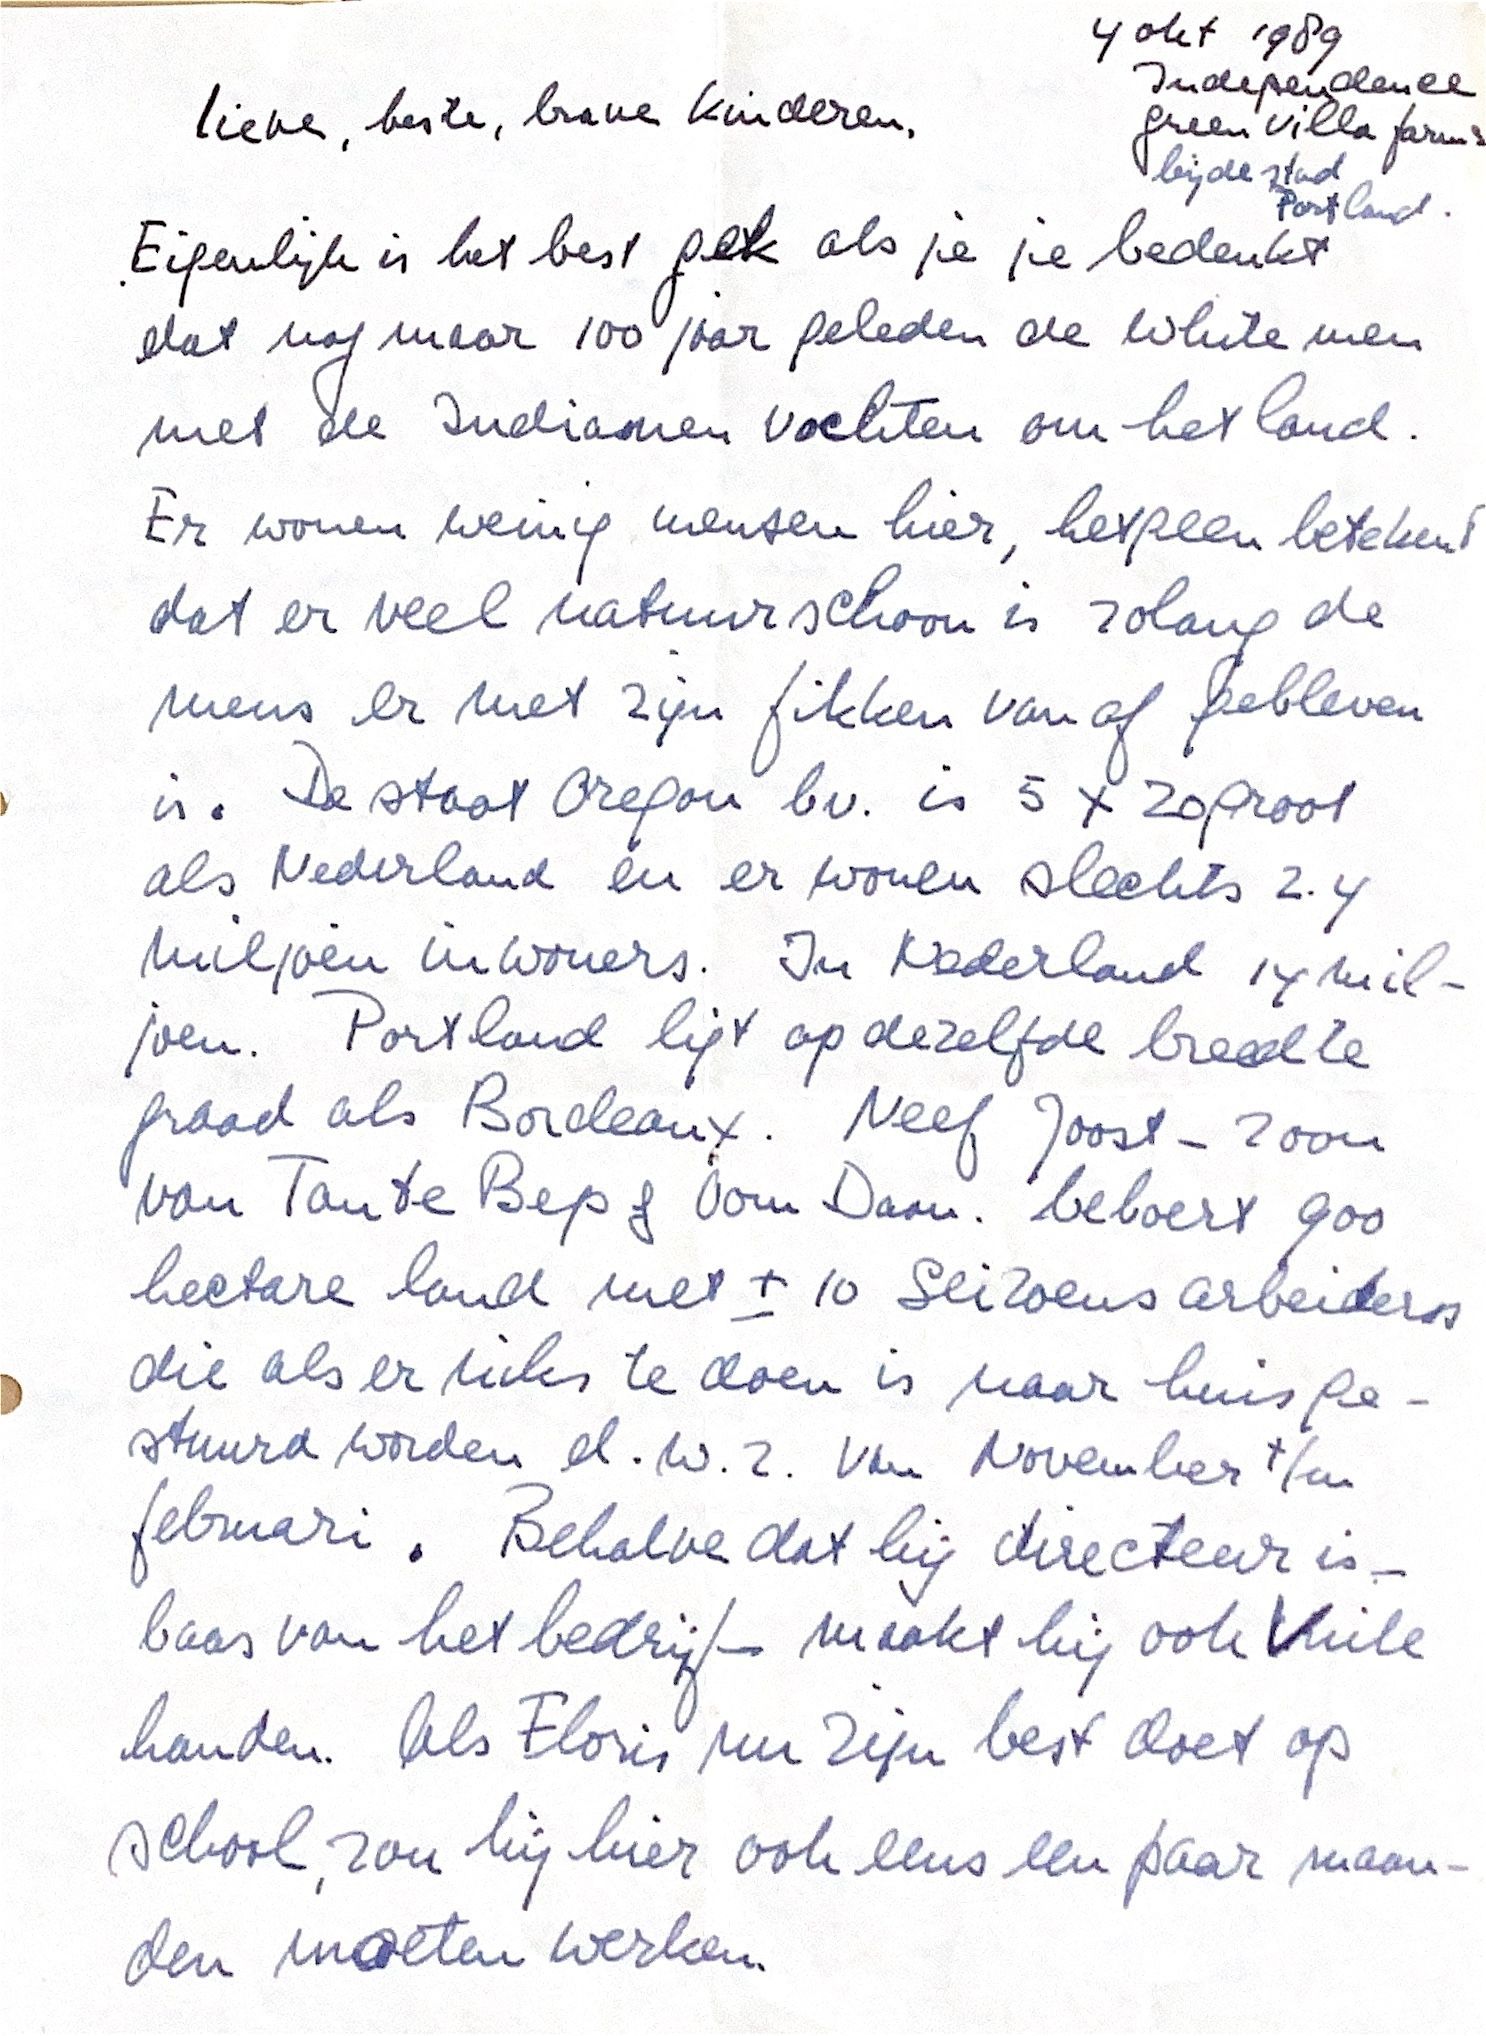 4 okt 1989
Independence
green villa farms
bij de stad
Portland.
lieve, beste, brave kinderen.
Eigenlijk is het best gek als je je bedenkt
dat nog maar 100 jaar geleden de white men
met de Indianen vochten om het land.
Er wonen weinig mensen hier, hetgeen betekent
dat er veel natuurschoon is zolang de
mens er met zijn fikken van af gebleven
is. De staat Oregon bv. is 5 x zo groot
als Nederland en er wonen slechts 2.4
miljoen inwoners. In Nederland 14 mil-
joen. Portland ligt op dezelfde breedte
graad als Bordeaux. Neef Joost - zoon
van Tante Bep & Oom Daan. beboert 900
hectare land met ± 10 Seizoensarbeiders
die als er niks te doen is naar huis ge-
stuurd worden d.w.z. van November t/m
februari. Behalve dat hij directeur is -
baas van het bedrijf - maakt hij ook vuile
handen. Als Floris nu zijn best doet op
school, zou hij hier ook eens een paar maan-
den moeten werken.